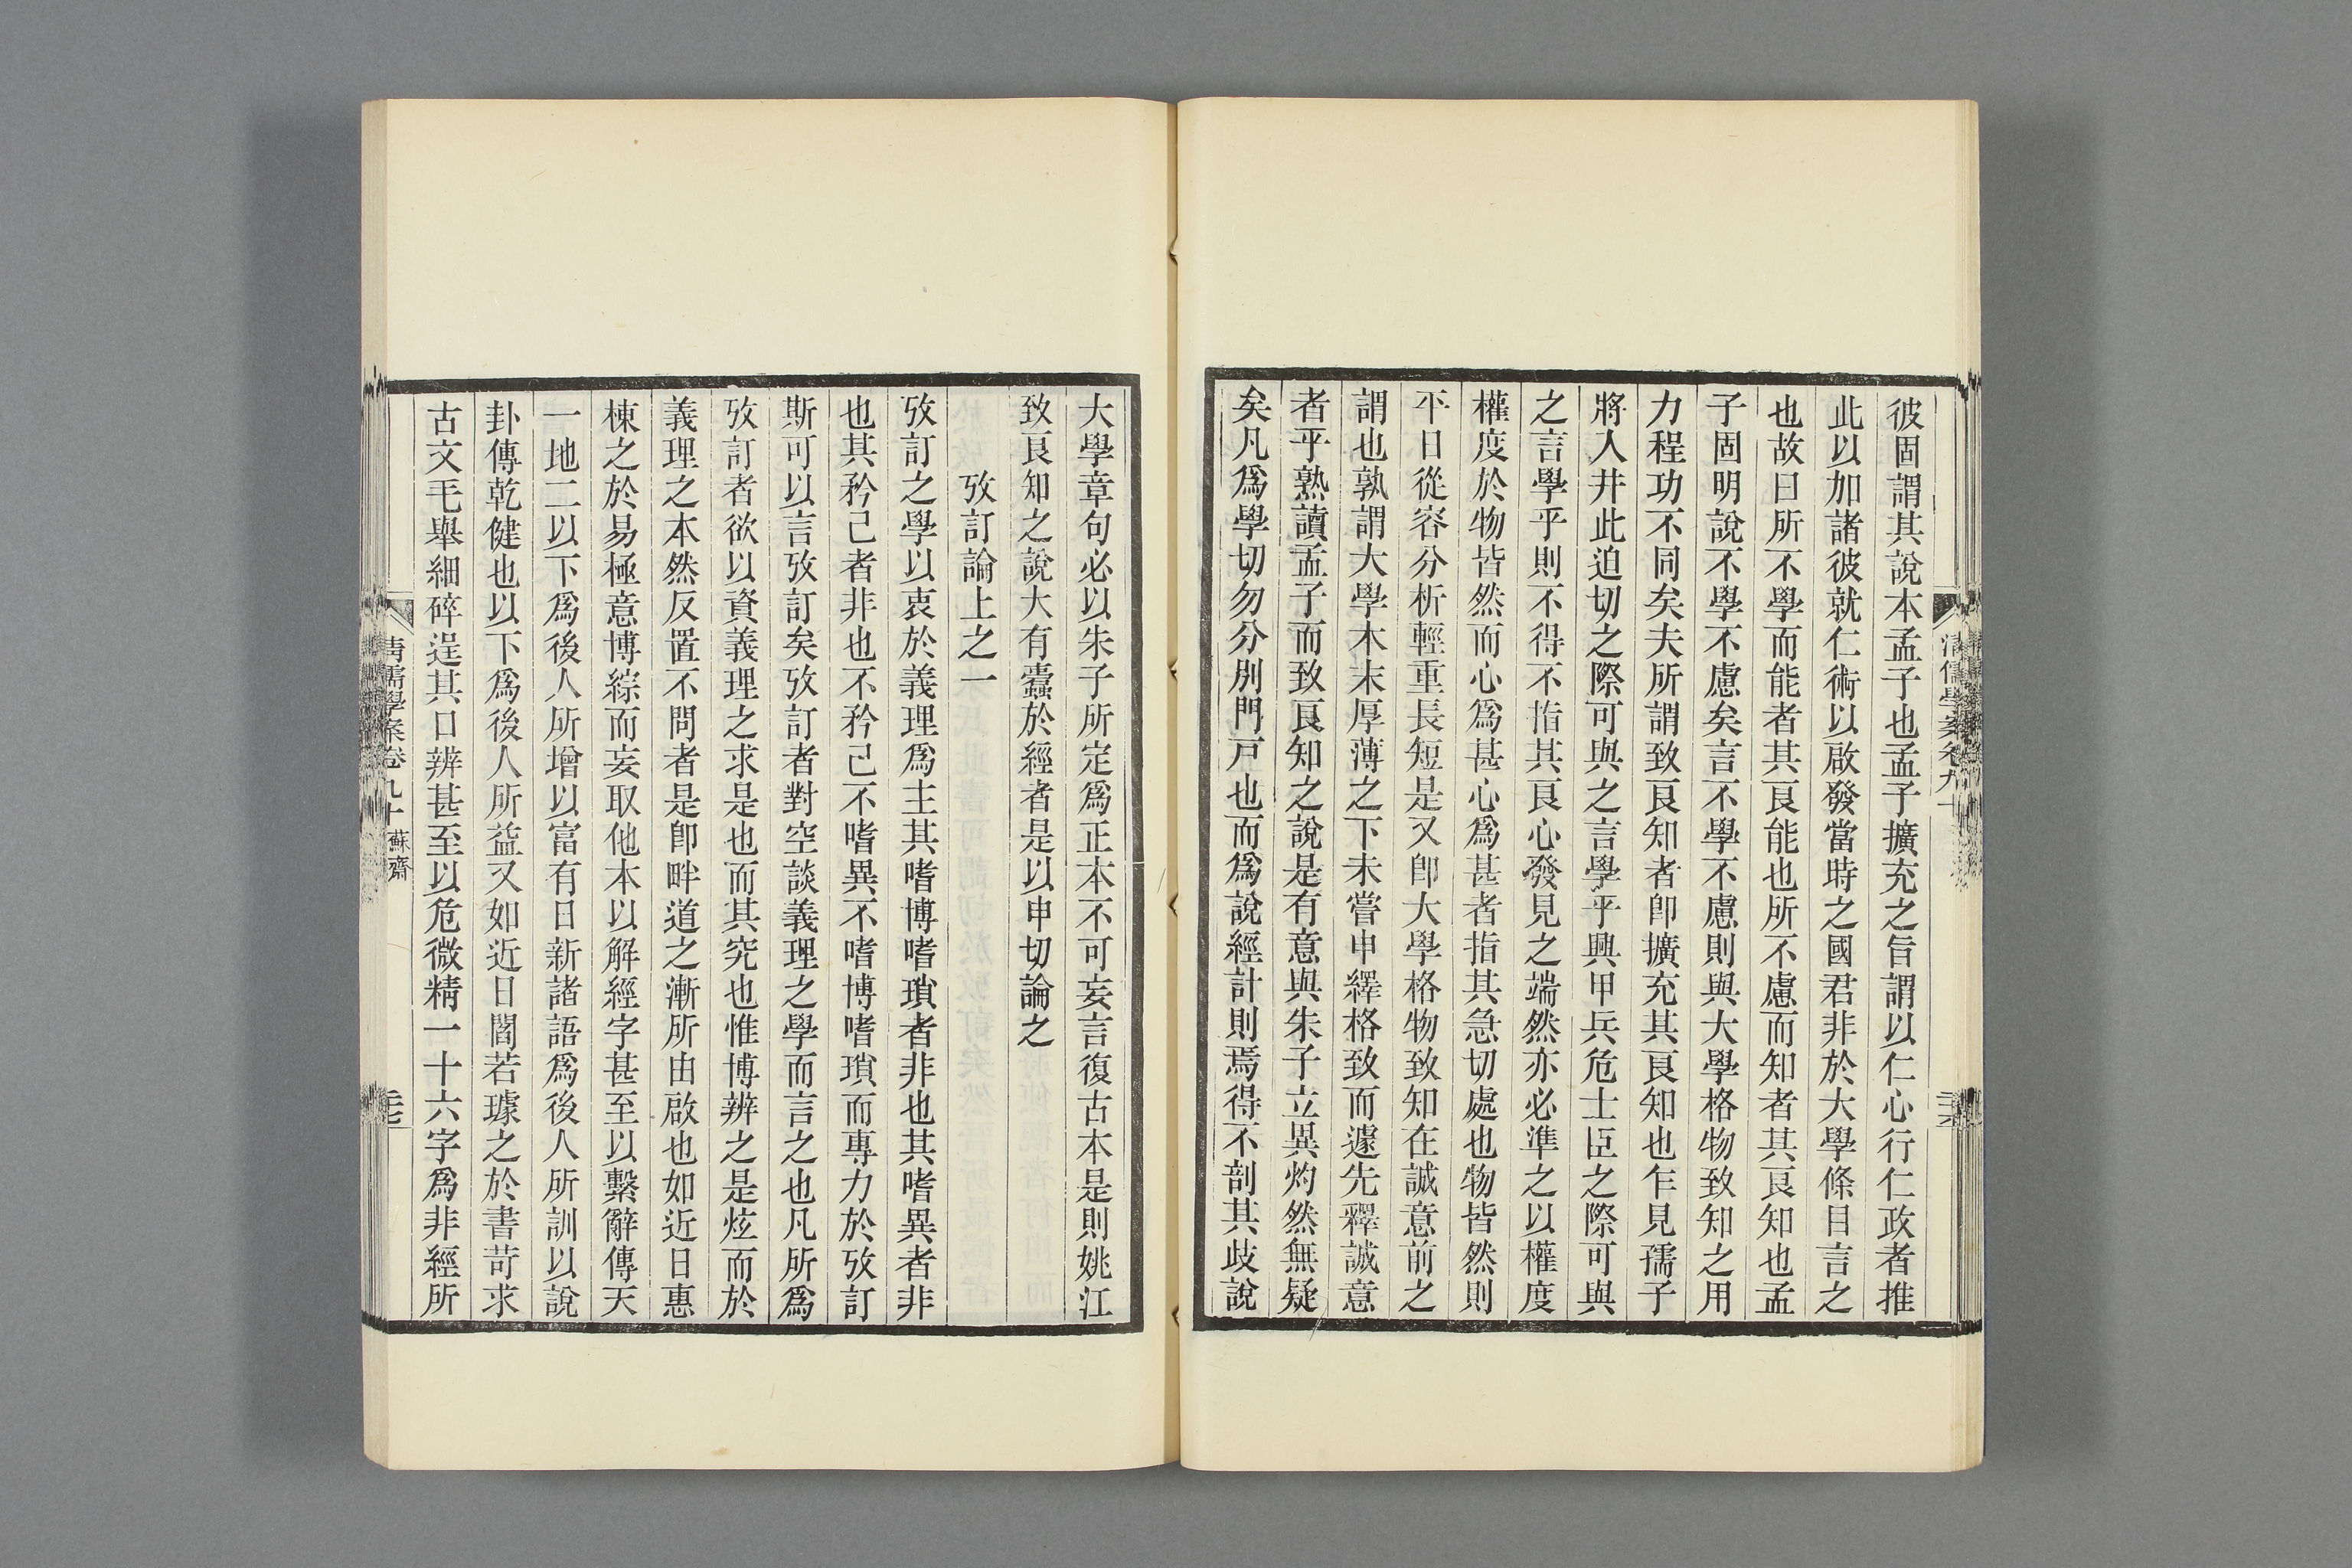 彼固謂其說本孟子也孟子擴充之旨謂以仁心行仁政者推
此以加諸彼就仁術以啟發當時之國君非於大學條目言之
也故曰所不學而能者其良能也所不慮而知者其良知也孟
子固明說不學不慮矣言不學不慮則與大學格物致知之用
力程功不同矣夫所謂致良知者卽擴充其良知也乍見孺子
將入井此迫切之際可與之言學乎興甲兵危士臣之際可與
之言學乎則不得不指其良心發見之端然亦必準之以權度
權度於物皆然而心爲甚心爲甚者指其急切處也物皆然則
平日從容分析輕重長短是又卽大學格物致知在誠意前之
謂也孰謂大學本末厚薄之下未嘗申繹格致而遽先釋誠意
者乎熟讀孟子而致良知之說是有意與朱子立異灼然無疑
矣凡爲學切勿分別門戸也而爲說經計則焉得不剖其歧說
清儒學案卷九十
三六
大學章句必以朱子所定爲正本不可妄言復古本是則姚江
致良知之說大有蠹於經者是以申切論之
攷訂論上之一
攷訂之學以衷於義理爲主其嗜博嗜瑣者非也其嗜異者非
也其矜己者非也不矜己不嗜異不嗜博嗜瑣而專力於攷訂
斯可以言攷訂矣攷訂者對空談義理之學而言之也凡所爲
攷訂者欲以資義理之求是也而其究也惟博辨之是炫而於
義理之本然反置不問者是卽畔道之漸所由啟也如近日惠
棟之於易極意博綜而妄取他本以解經字甚至以繫辭傳天
一地二以下爲後人所增以富有日新諸語爲後人所訓以說
卦傳乾健也以下爲後人所益又如近日閻若璩之於書苛求
古文毛舉細碎逞其口辨甚至以危微精一十六字爲非經所
清儒學案卷九十 蘇齋
三七